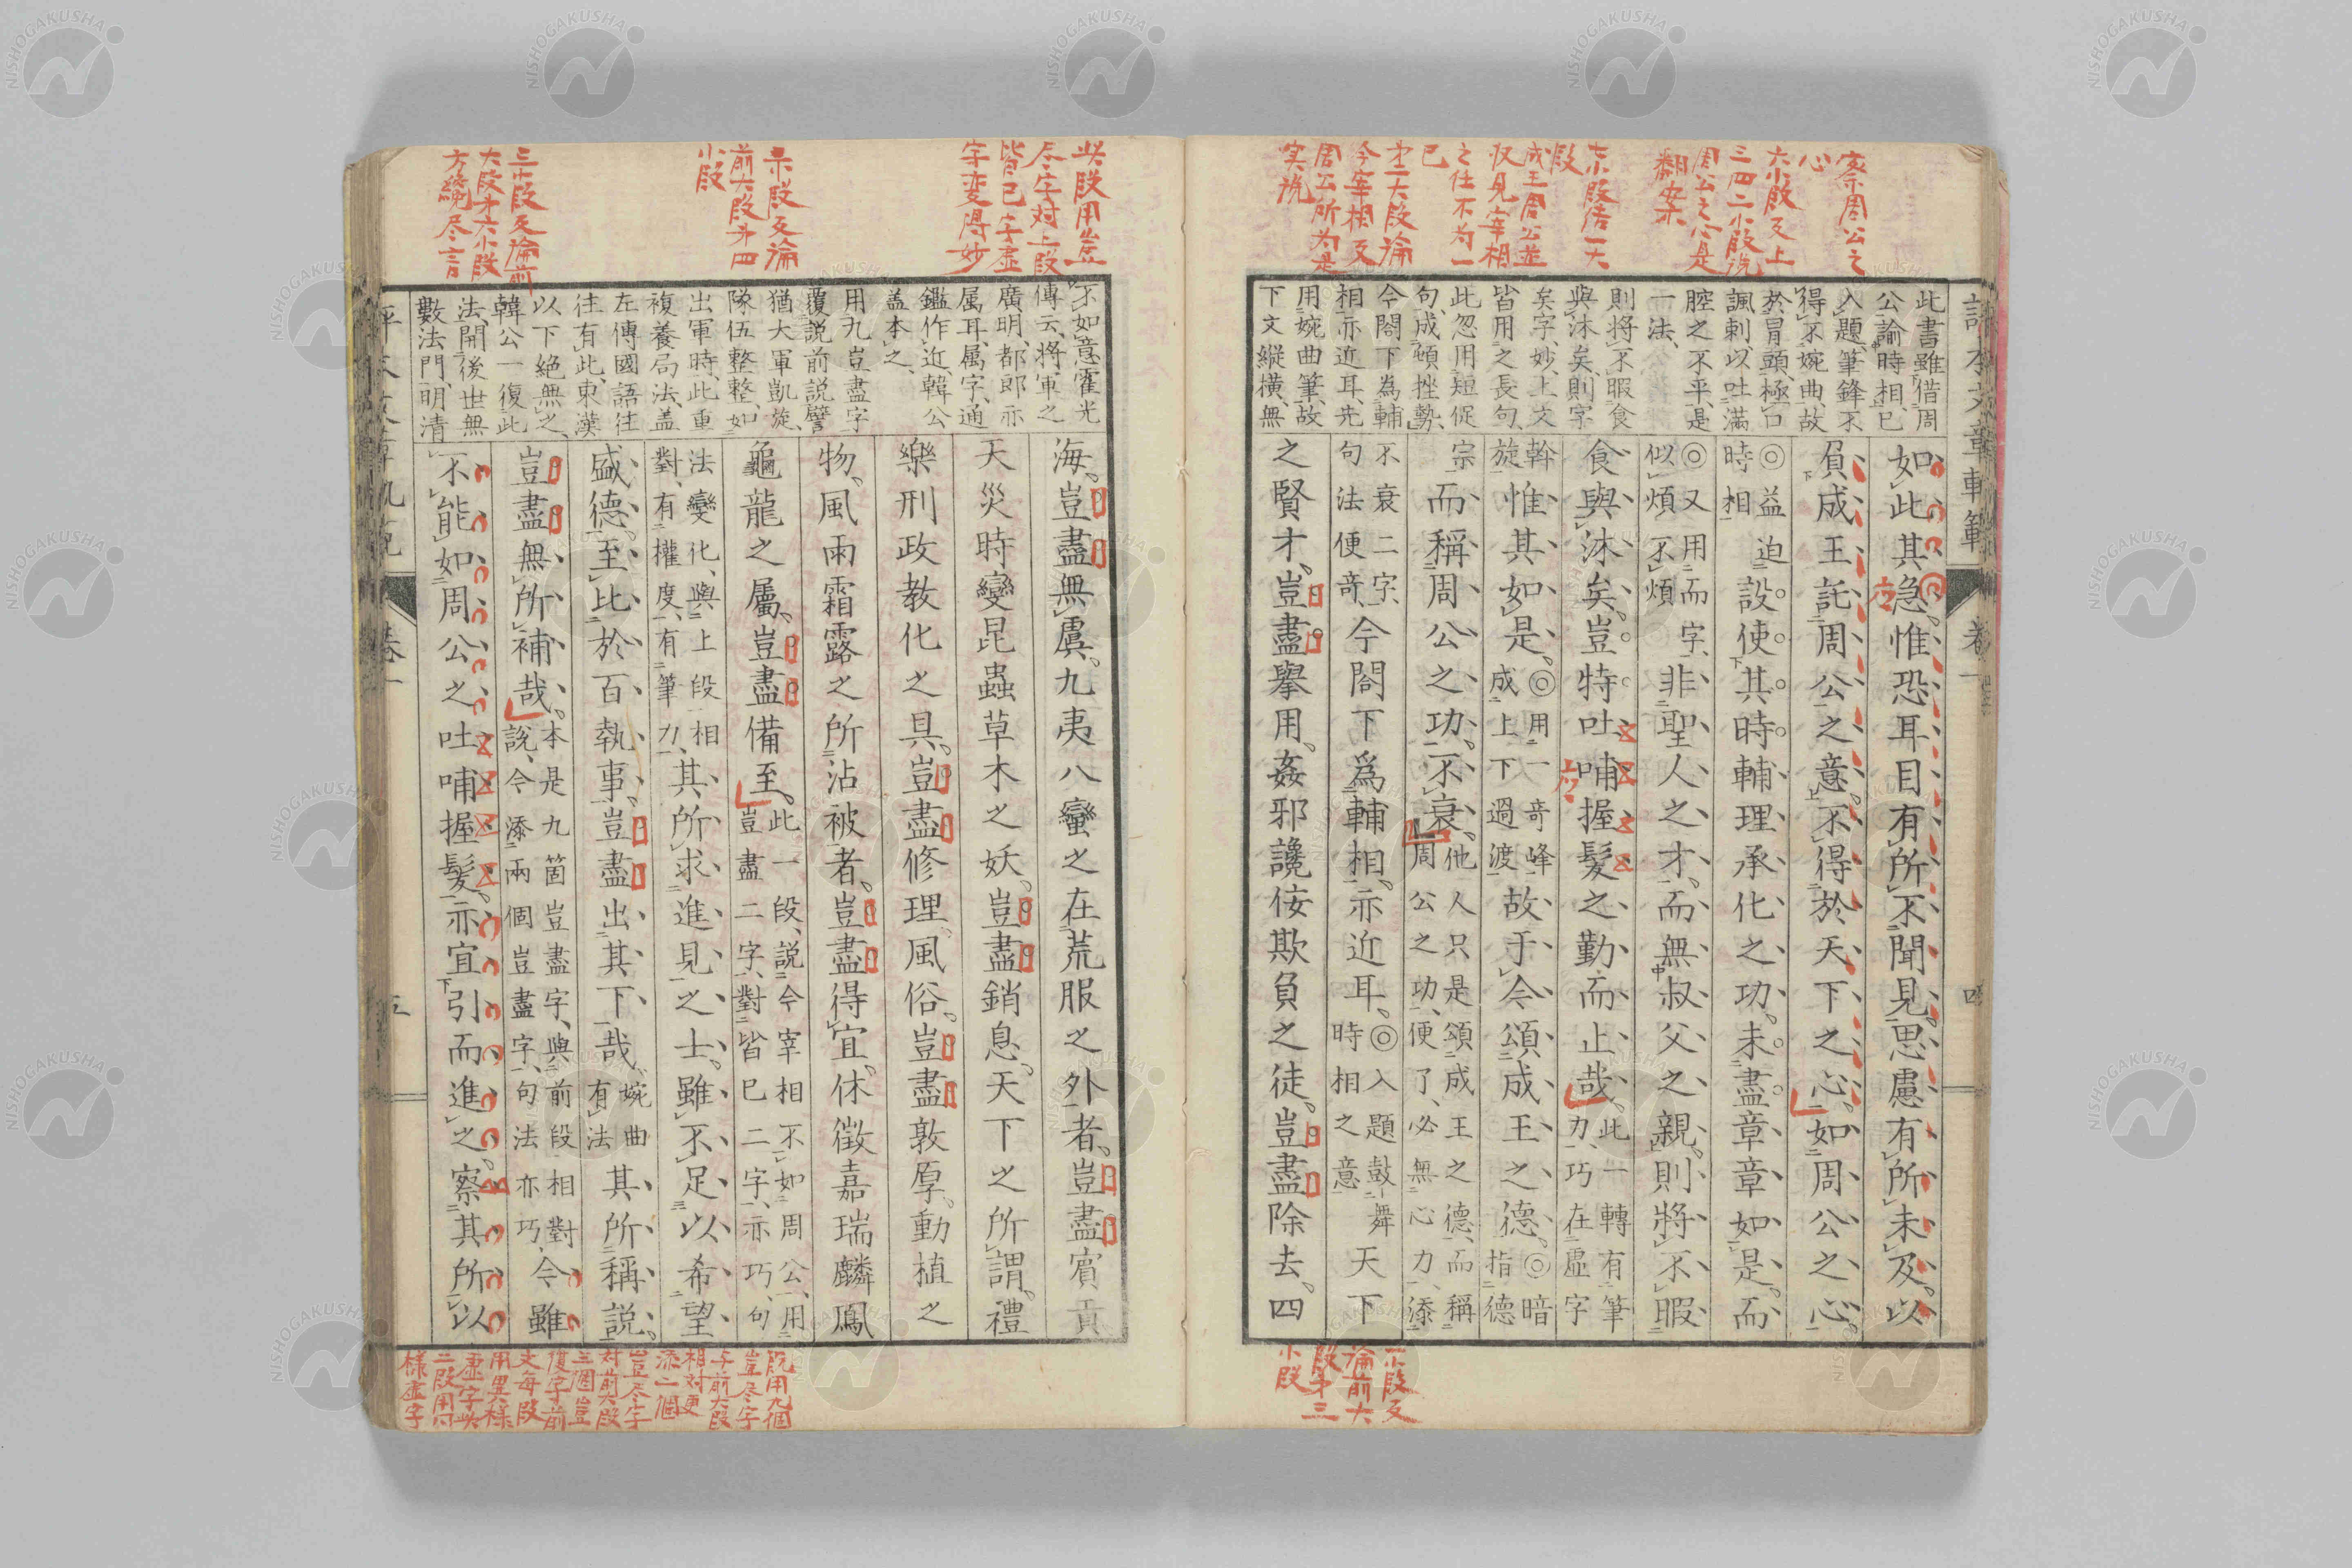 評本文章軌範
卷一
四
察周公之
心
六小段反上
三四二小段說
周公之心是
翻案
七小段結一大
段
成王周公並
收見宰相
之任不為一
已
才二大段論
今宰相反
周公所为是
実說
此書雖借周
公諭時相、已
入題、筆鋒不
得不婉曲、故
於冒頭、極口
諷刺、以吐滿
腔之不平、是
一法、
則將不暇食
與沐矣、則字
矣字、妙、上文
皆用之長句、
此忽用短促
句、成頓挫勢、
今閤下為輔
相亦近耳、先
用婉曲筆、故
下文縱橫、無
如此其急。惟恐耳目有所不聞見。思慮有所未及。以
負成王託周公之意。不得於天下之心。如周公之心。
◎益迫
時相
設使其時輔理承化之功。未盡章章如是。而
◎又用而字、
似煩不煩
非聖人之才。而無叔父之親。則將不暇
食與沐矣。豈特吐哺握髮之勤而止哉。
此一轉有筆
力、巧在虛字
斡
旋
惟其如是。
◎用一奇峰
成上下過渡
故于今頌成王之德。
◎暗
指德
宗
而稱周公之功。不衰。
他人只是頌成王之德、而稱
周公之功、便了、必無心力、添
不衰二字、
句法便奇、
今閤下爲輔相。亦近耳。
◎入題鼓舞
時相之意
天下
之賢才。豈盡舉用。姦邪讒佞欺負之徒。豈盡除去。四
小段反
論前大
段第三
小段
此段用豈
尽字対上段
皆已字虚
字変得妙
示段反論
前大段才四
小段
三小段反論前
大段才六小段
方纔尽言
不如意、霍光
傳云、將軍之
廣明、都郎亦
属耳、属字、通
鑑作近、韓公
盖本之、
用九豈盡字
覆説前説、譬
猶大軍凱旋、
隊伍整整、如
出軍時、此重
複養局法、盖
左傳國語往
往有此、東漢
以下絶無之、
韓公一復此
法、開後世無
數法門、明清
海。豈盡無虞。九夷八蠻之在荒服之外者。豈盡賓貢
天災時變昆蟲草木之妖。豈盡銷息。天下之所謂禮
樂刑政教化之具。豈盡修理。風俗。豈盡敦厚。動植之
物。風雨霜露之所沾被者。豈盡得宜。休徵嘉瑞麟鳳
龜龍之屬。豈盡備至。
此一段、説今宰相不如周公、用
豈盡二字、對皆已二字、亦巧、句
法變化、與上段相
對、有權度、有筆力、
其所求進見之士。雖不足以希望
盛德。至比於百執事。豈盡出其下哉。
婉曲
有法
其所稱説。
豈盡無所補哉。
本是九箇豈盡字、與前段相對
説、今添兩個豈盡字、句法亦巧、
今雖
不能如周公之吐哺握髮。亦宜引而進之。察其所以
既用九個
豈尽字
与前大段
相対更
添二個
豈尽字
対前大段
三個豈
復字前
文每段
用異様
虚字此
二段用
様虚字